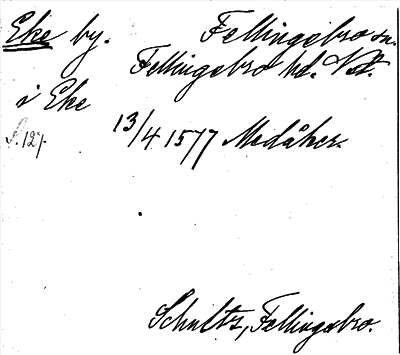 Eke by. Fellingsbro sn.
Fellingsbro hd. Vstm.
i Eke
S. 127. 13/4 1577 Medåker.
Schultz, Fellingsbro.